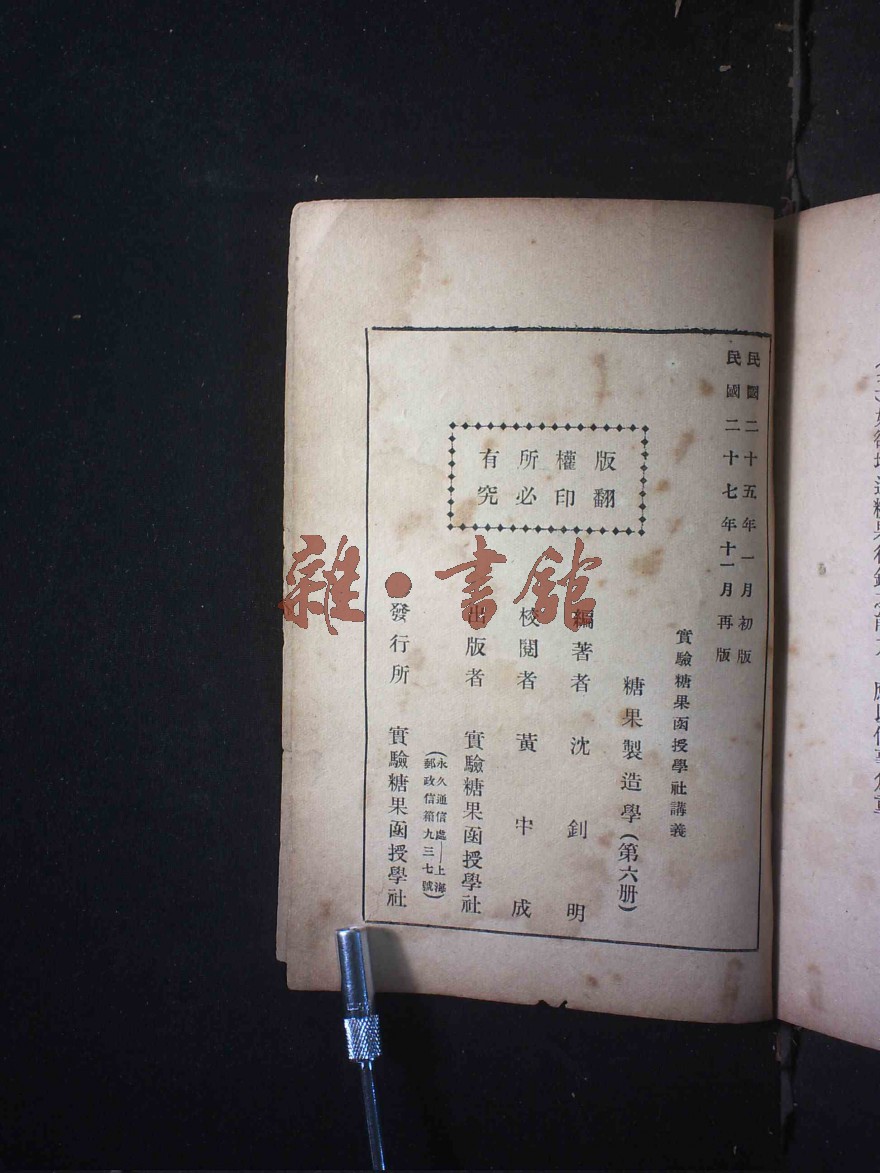 民國二十五年一月初版
民國二十七年十一月再版
實驗糖果函授學社講義
糖果製造學（第六册）
編著者 沈釗明
校閱者 黃中成
出版者 實驗糖果函授學社
（永久通信處——上海
郵政信箱九三七號）
發行所 實驗糖果函授學社
版權所有
翻印必究
雜·書館